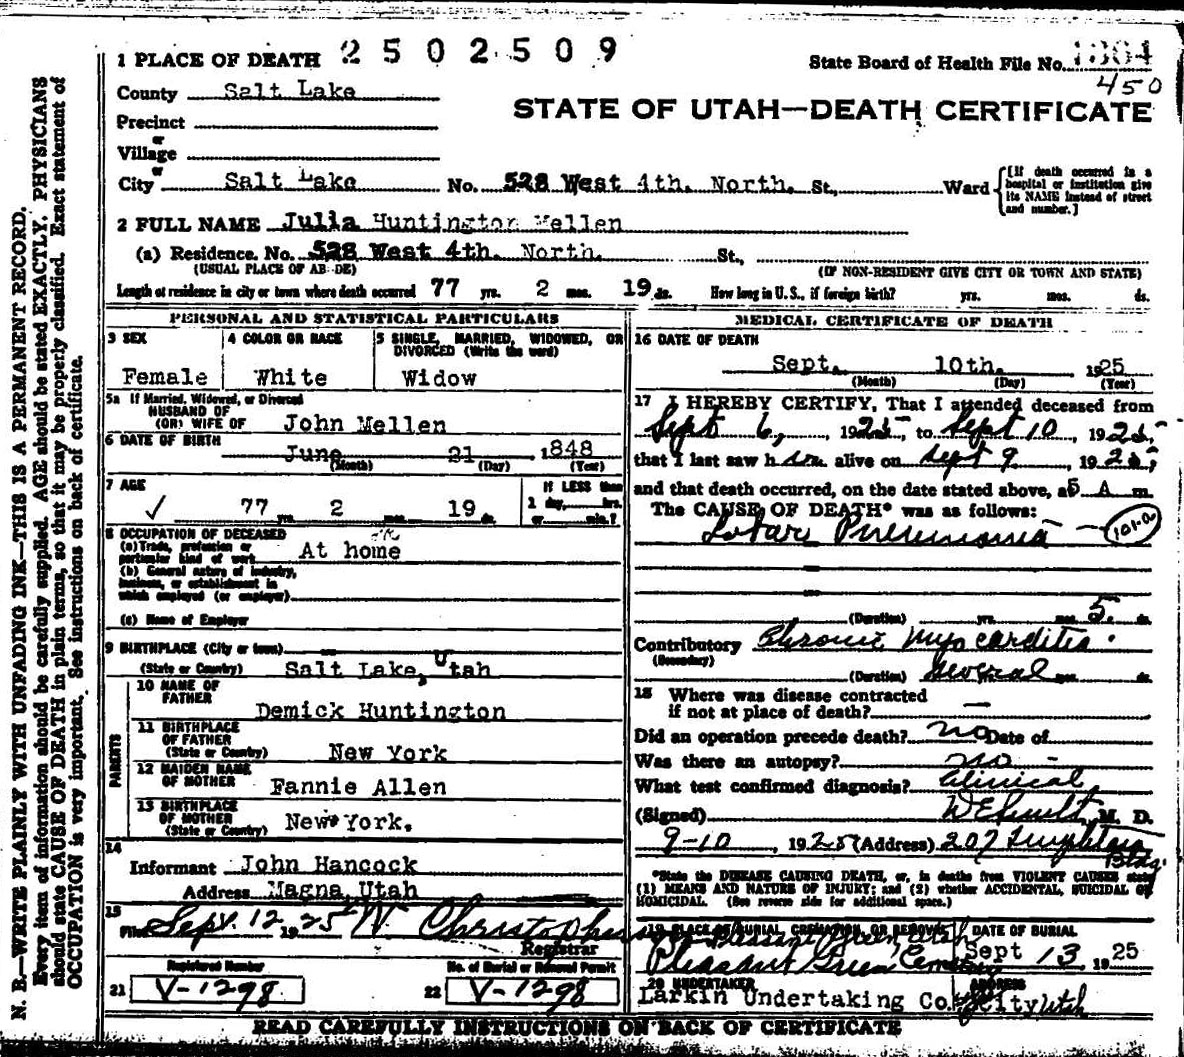 2502509
1 PLACE OF DEATH
State Board of Health File No. 1364
450
County Salt Lake
STATE OF UTAH—DEATH CERTIFICATE
Precinct
or
Village
or
City Salt Lake No. 528 West 4th. North. St., Ward
[If death occurred in a hospital or institution give its NAME instead of street and number.]
2 FULL NAME Julia Huntington Mellen
(a) Residence. No. 528 West 4th. North. St.,
(USUAL PLACE OF AB DE) (IF NON-RESIDENT GIVE CITY OR TOWN AND STATE)
Length of residence in city or town where death occurred 77 yrs. 2 mos. 19 ds. How long in U.S., if foreign birth? yrs. mos. ds.
PERSONAL AND STATISTICAL PARTICULARS
3 SEX
Female
4 COLOR OR RACE
White
5 SINGLE, MARRIED, WIDOWED, OR
DIVORCED (Write the word)
Widow
5a If Married, Widowed, or Divorced
HUSBAND OF
(OR) WIFE OF John Mellen
6 DATE OF BIRTH
June 21 1848
(Month) (Day) (Year)
7 AGE
77 yrs. 2 mos. 19 ds.
IF LESS than
1 day, hrs.
or min.?
8 OCCUPATION OF DECEASED
(a) Trade, profession or
particular kind of work At home
(b) General nature of industry,
business, or establishment in
which employed (or employer)
(c) Name of Employer
9 BIRTHPLACE (City or town)
(State or Country) Salt Lake, Utah
PARENTS
10 NAME OF
FATHER
Demick Huntington
11 BIRTHPLACE
OF FATHER
(State or Country) New York
12 MAIDEN NAME
OF MOTHER Fannie Allen
13 BIRTHPLACE
OF MOTHER
(State or Country) New York.
14
Informant John Hancock
Address Magna, Utah
15
Filed Sept. 12 1925 W.
Registrar
Registered Number
21 V-1298
No. of Burial or Removal Permit
22 V-1298
MEDICAL CERTIFICATE OF DEATH
16 DATE OF DEATH
Sept. 10th. 1925
(Month) (Day) (Year)
17 I HEREBY CERTIFY, That I attended deceased from
Sept 6, 1925, to Sept 10, 1925,
that I last saw her alive on Sept 9 1925,
and that death occurred, on the date stated above, at 5 A m.
The CAUSE OF DEATH* was as follows:
Lobar Pneumonia — 101-a
(Duration) yrs. mos. 5. ds.
Contributory Chronic Myocarditis.
(Secondary)
(Duration) several mos. ds.
18 Where was disease contracted
if not at place of death? —
Did an operation precede death? no Date of
Was there an autopsy? no -
What test confirmed diagnosis? Clinical
(Signed) M. D.
9-10, 1925 (Address) 207 Templeton
Bldg.
*State the DISEASE CAUSING DEATH, or, in deaths from VIOLENT CAUSES state
(1) MEANS AND NATURE OF INJURY; and (2) whether ACCIDENTAL, SUICIDAL or
HOMICIDAL. (See reverse side for additional space.)
19 PLACE OF BURIAL, CREMATION, OR REMOVAL
Pleasant Green, Utah
Pleasant Green Cemetery
DATE OF BURIAL
Sept 13 1925
20 UNDERTAKER
Larkin Undertaking Co.
ADDRESS
City Utah
READ CAREFULLY INSTRUCTIONS ON BACK OF CERTIFICATE
N. B.—WRITE PLAINLY WITH UNFADING INK—THIS IS A PERMANENT RECORD.
Every item of information should be carefully supplied. AGE should be stated EXACTLY. PHYSICIANS
should state CAUSE OF DEATH in plain terms, so that it may be properly classified. Exact statement of
OCCUPATION is very important. See instructions on back of certificate.